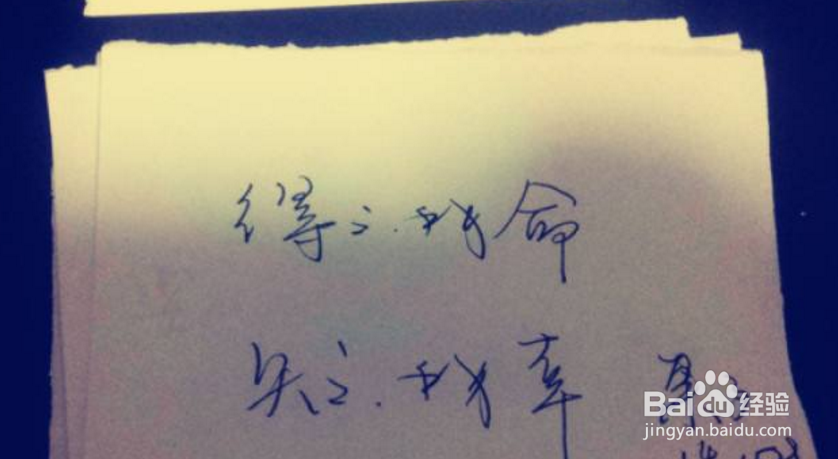 得之.我命
失之.我幸
Baidu经验
jingyan.baidu.com